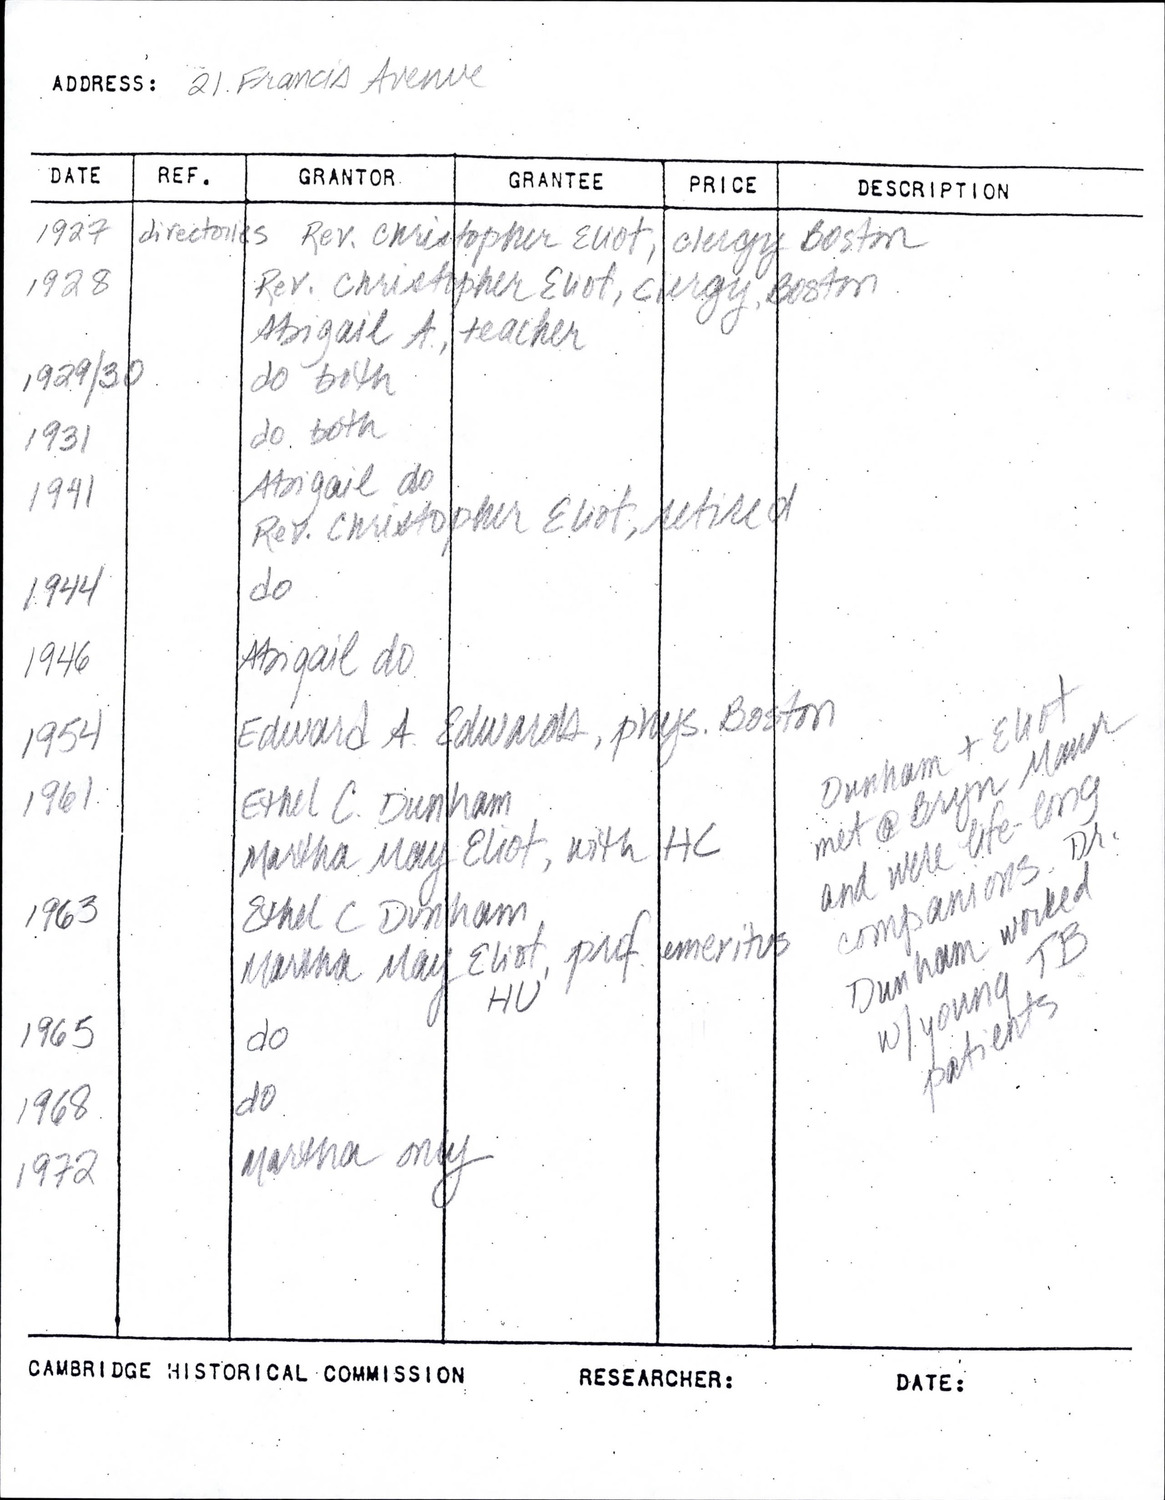 ADDRESS: 21 Francis Avenue
DATE REF. GRANTOR GRANTEE PRICE DESCRIPTION
1927 directories Rev. Christopher Eliot, clergy Boston
1928 Rev. Christopher Eliot, clergy, Boston
Abigail A., teacher
1929/30 do both
1931 do. both
1941 Abigail do
Rev. Christopher Eliot, retired
1944 do
1946 Abigail do
1954 Edward A. Edwards, phys. Boston
1961 Ethel C. Dunham
Martha May Eliot, with HC
1963 Ethel C Dunham
Martha May Eliot, prof. emeritus
HU
1965 do
1968 do
1972 Martha only
Dunham + Eliot
met @ Bryn Mawr
and were life-long
companions. Dr.
Dunham worked
w/ young TB
patients
CAMBRIDGE HISTORICAL COMMISSION RESEARCHER: DATE: